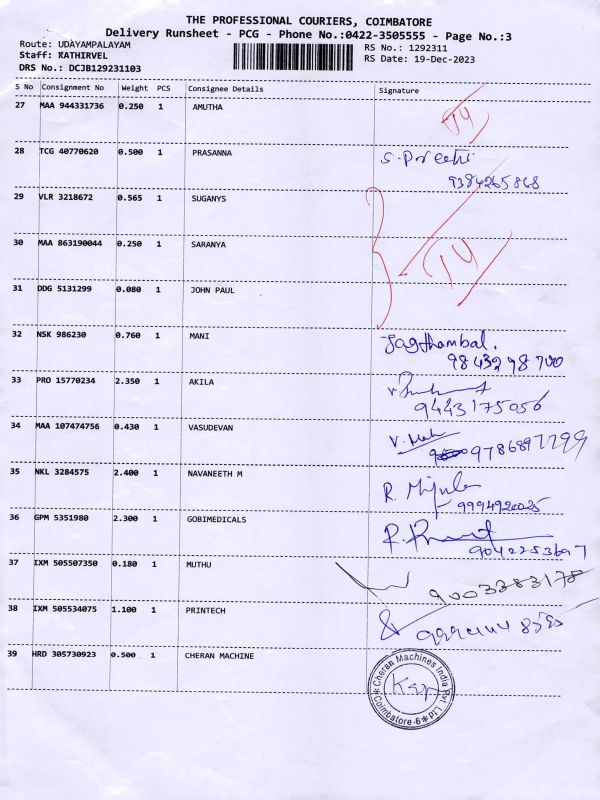 THE PROFESSIONAL COURIERS, COIMBATORE
Delivery Runsheet - PCG - Phone No.:0422-3505555 - Page No.:3
Route: UDAYAMPALAYAM RS No.: 1292311
Staff: KATHIRVEL RS Date: 19-Dec-2023
DRS No.: DCJB129231103
S No Consignment No Weight PCS Consignee Details Signature
27 MAA 944331736 0.250 1 AMUTHA
28 TCG 40770620 0.500 1 PRASANNA S. Preethi
9384265868
29 VLR 3218672 0.565 1 SUGANYS
30 MAA 863190044 0.250 1 SARANYA
31 DDG 5131299 0.080 1 JOHN PAUL
32 NSK 986230 0.760 1 MANI Jagthambal.
98432 98 700
33 PRO 15770234 2.350 1 AKILA
9443175056
34 MAA 107474756 0.430 1 VASUDEVAN
9786897799
35 NKL 3284575 2.400 1 NAVANEETH M R.
9994920025
36 GPM 5351980 2.300 1 GOBIMEDICALS R.
9042253697
37 IXM 505507350 0.180 1 MUTHU 9003383178
38 IXM 505534075 1.100 1 PRINTECH
39 HRD 305730923 0.500 1 CHERAN MACHINE
Cheran Machines India Pvt. Ltd
Coimbatore-6